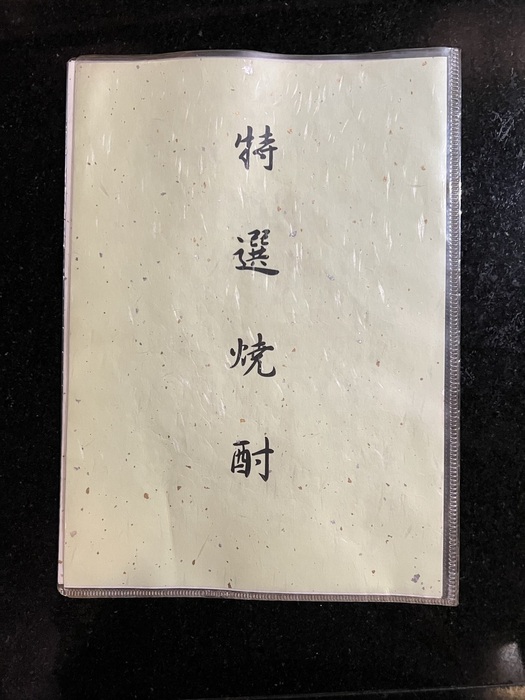 特選焼酎